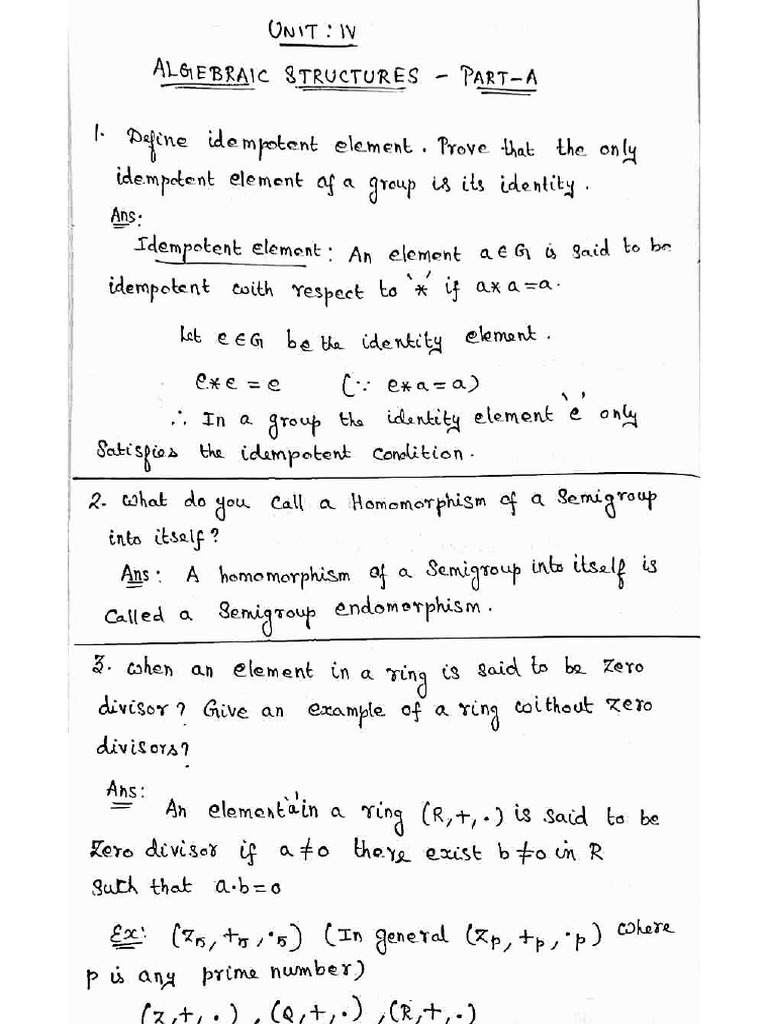 UNIT : IV
ALGEBRAIC STRUCTURES - PART-A
1. Define idempotent element. Prove that the only
idempotent element of a group is its identity.
Ans:
Idempotent element: An element a∈G is said to be
idempotent with respect to '*' if a*a=a.
Let e∈G be the identity element.
e*e = e (∵ e*a=a)
∴ In a group the identity element 'e' only
Satisfies the idempotent Condition.
2. What do you Call a Homomorphism of a Semigroup
into itself?
Ans: A homomorphism of a Semigroup into itself is
Called a Semigroup endomorphism.
3. When an element in a ring is said to be zero
divisor? Give an example of a ring without zero
divisors?
Ans:
An element 'a' in a ring (R,+,·) is said to be
Zero divisor if a≠0 there exist b≠0 in R
Such that a·b=0
Ex: (Z₅,+₅,·₅) (In general (Zp,+p,·p) where
p is any prime number)
(Z,+,·), (Q,+,·), (R,+,·)